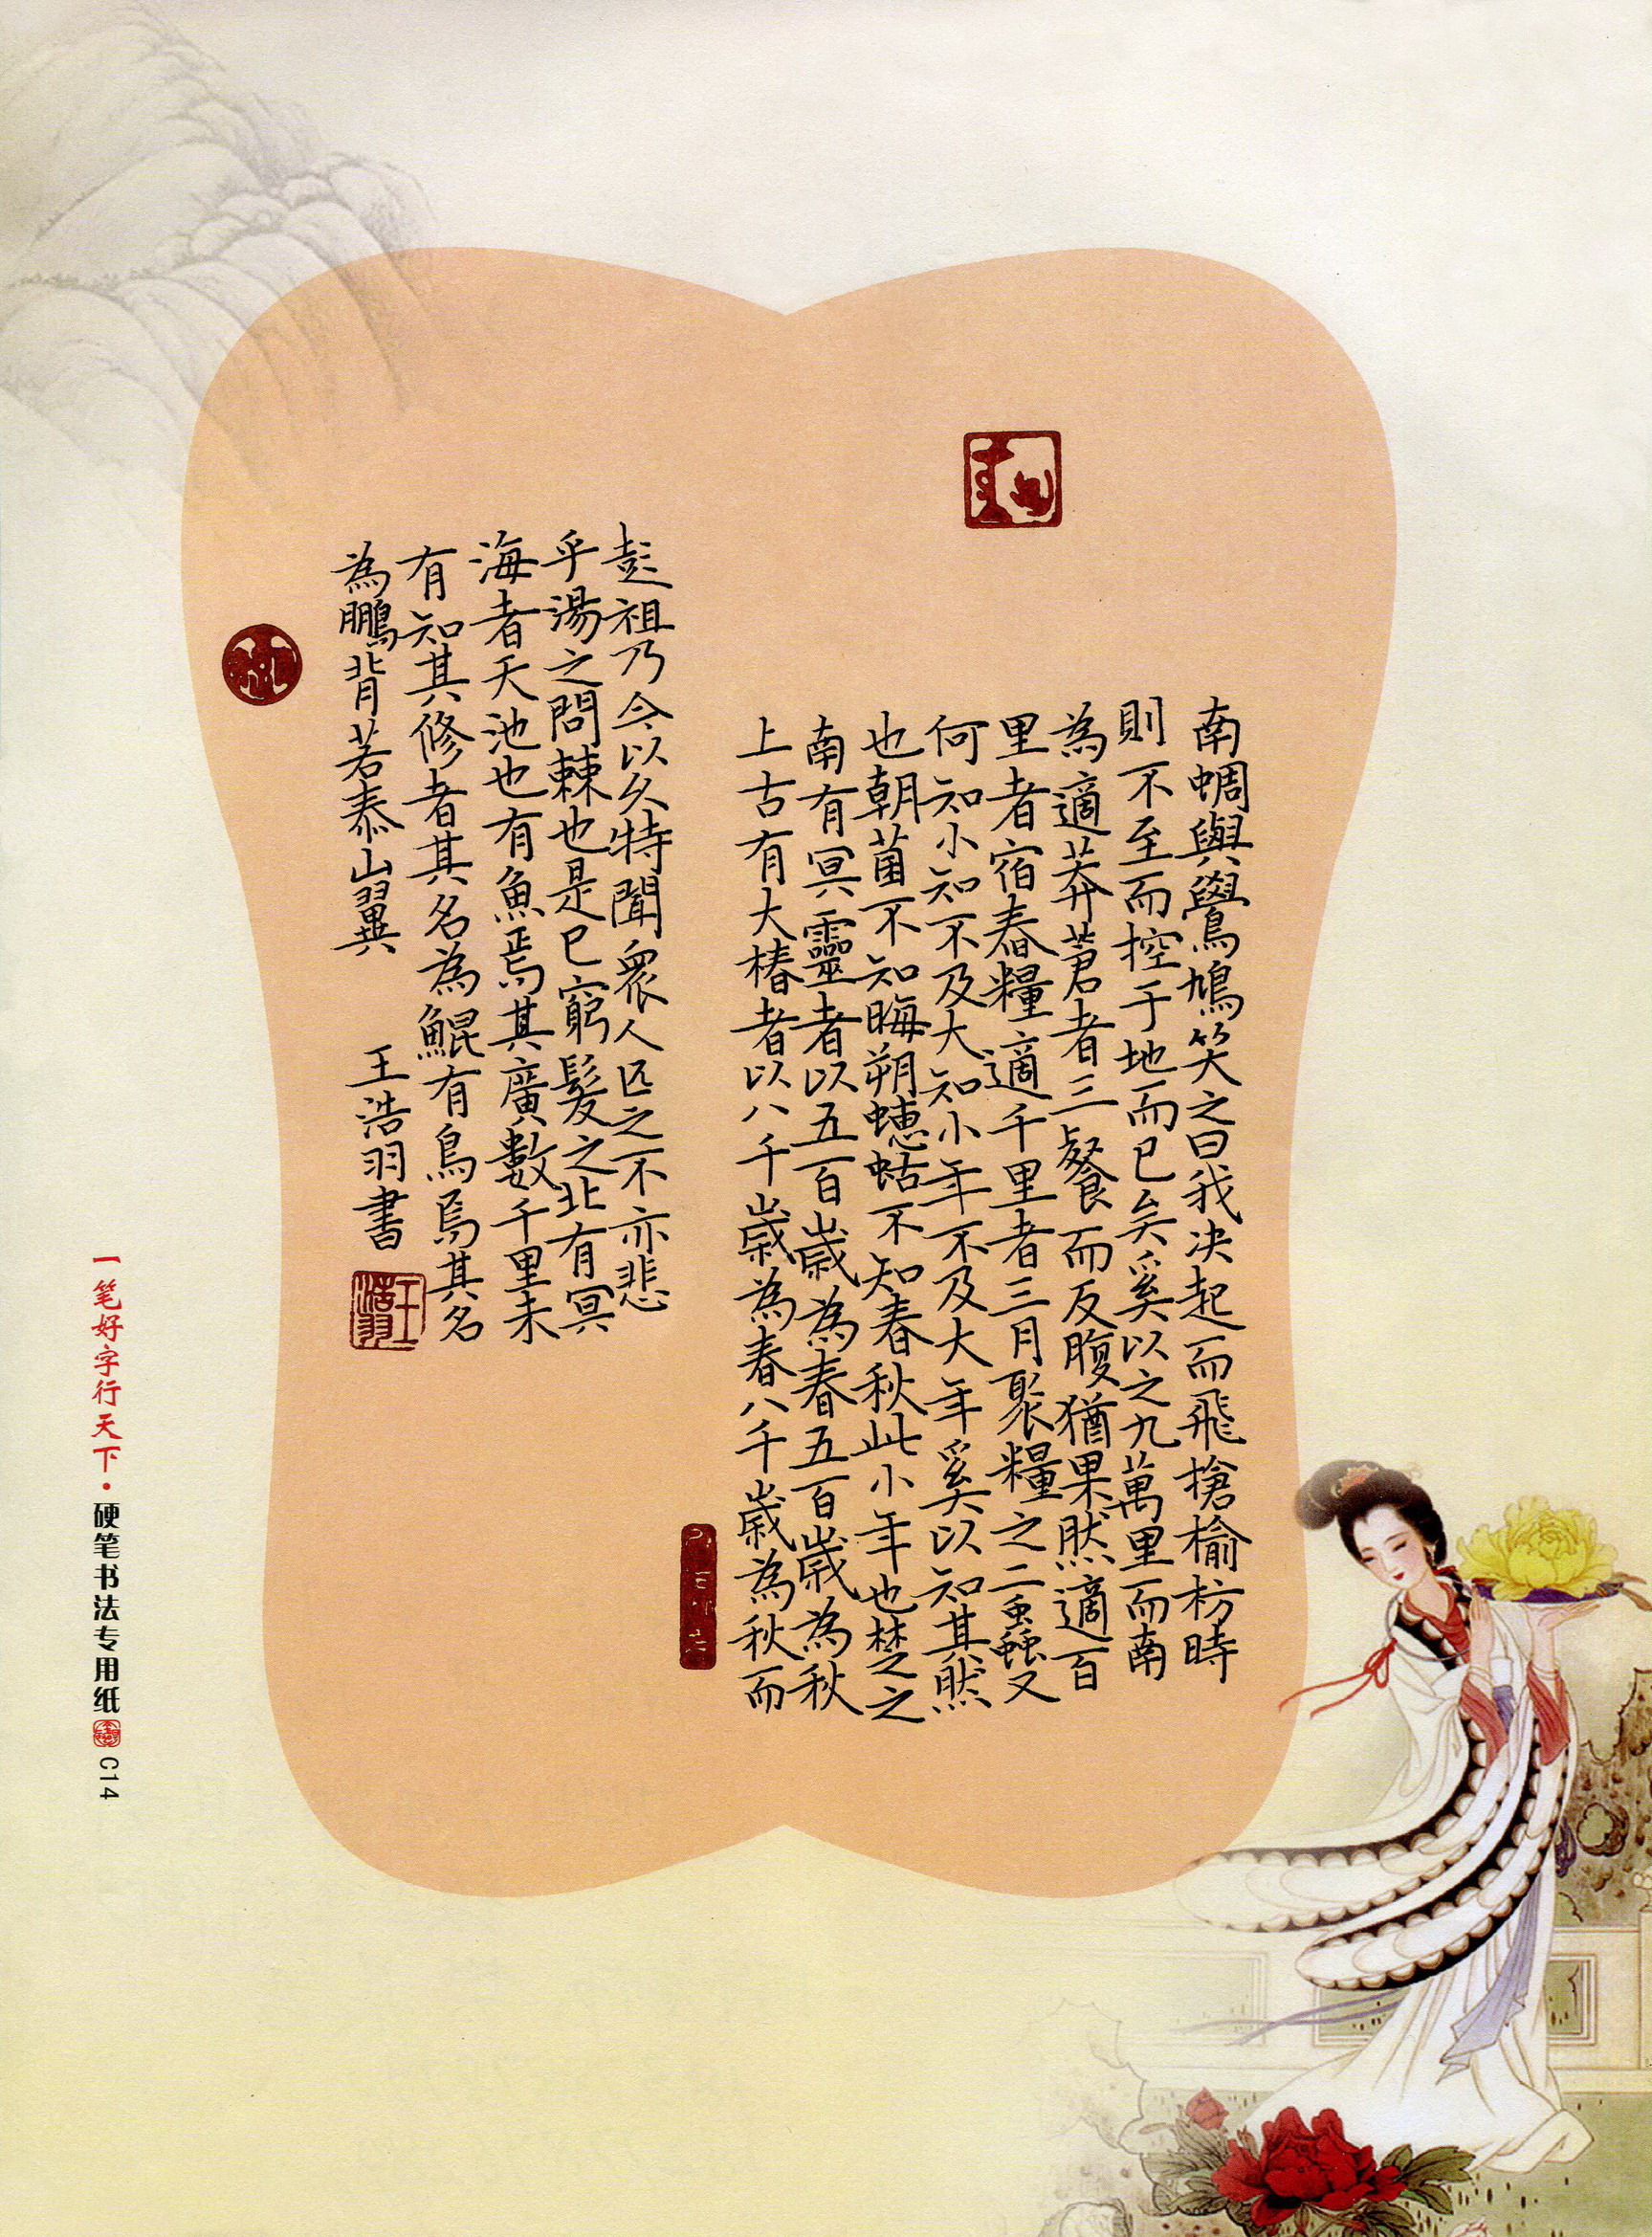 南蜩與鷽鳩笑之曰我决起而飛槍榆枋時
則不至而控于地而已矣奚以之九萬里而南
為適莽莙者三餐而反腹猶果然適百
里者宿舂糧適千里者三月聚糧之二蟲又
何知小知不及大知小年不及大年奚以知其然
也朝菌不知晦朔蟪蛄不知春秋此小年也楚之
南有冥靈者以五百歲為春五百歲為秋
上古有大椿者以八千歲為春八千歲為秋而
彭祖乃今以久特聞衆人匹之不亦悲
乎湯之問棘也是已窮髮之北有冥
海者天池也有魚焉其廣數千里未
有知其修者其名為鯤有鳥焉其名
為鵬背若泰山翼 王浩羽書
王浩羽
一笔好字行天下·硬笔书法专用纸 C14